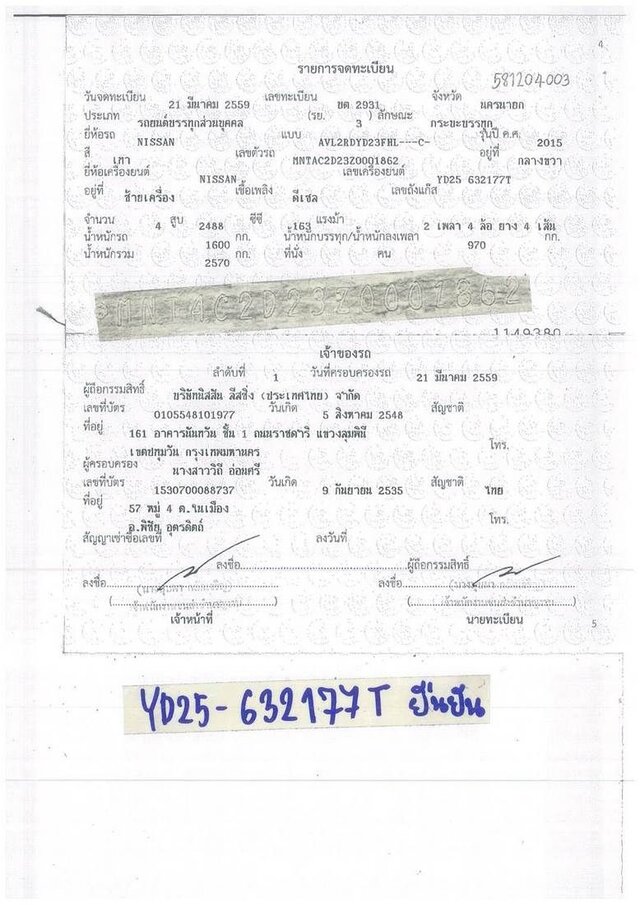 4
รายการจดทะเบียน
581204003
วันจดทะเบียน 21 มีนาคม 2559 เลขทะเบียน ยต 2931 จังหวัด นครนายก
ประเภท รถยนต์บรรทุกส่วนบุคคล (รย. 3 ) ลักษณะ กระบะบรรทุก
ยี่ห้อรถ NISSAN แบบ AVL2RDYD23FHL---C- รุ่นปี ค.ศ. 2015
สี เทา เลขตัวรถ MNTAC2D23Z0001862 อยู่ที่ กลางขวา
ยี่ห้อเครื่องยนต์ NISSAN เลขเครื่องยนต์ YD25 632177T
อยู่ที่ ซ้ายเครื่อง เชื้อเพลิง ดีเซล เลขถังแก๊ส
จำนวน 4 สูบ 2488 ซีซี 163 แรงม้า 2 เพลา 4 ล้อ ยาง 4 เส้น
น้ำหนักรถ 1600 กก. น้ำหนักบรรทุก/น้ำหนักลงเพลา 970 กก.
น้ำหนักรวม 2570 กก. ที่นั่ง คน
MNTAC2D23Z0001862
1149380
เจ้าของรถ
ลำดับที่ 1 วันที่ครอบครองรถ 21 มีนาคม 2559
ผู้ถือกรรมสิทธิ์ บริษัทนิสสัน ลีสซิ่ง (ประเทศไทย) จำกัด
เลขที่บัตร 0105548101977 วันเกิด 5 สิงหาคม 2548 สัญชาติ
ที่อยู่ 161 อาคารนันทวัน ชั้น 1 ถนนราชดำริ แขวงลุมพินี
เขตปทุมวัน กรุงเทพมหานคร โทร.
ผู้ครอบครอง นางสาววิถี อ่อนศรี
เลขที่บัตร 1530700088737 วันเกิด 9 กันยายน 2535 สัญชาติ ไทย
ที่อยู่ 57 หมู่ 4 ต.ในเมือง
อ.พิชัย อุตรดิตถ์ โทร.
สัญญาเช่าซื้อเลขที่ ลงวันที่
ลงชื่อ ผู้ถือกรรมสิทธิ์
ลงชื่อ ลงชื่อ
เจ้าหน้าที่ นายทะเบียน
5
YD25-632177T ยืนยัน